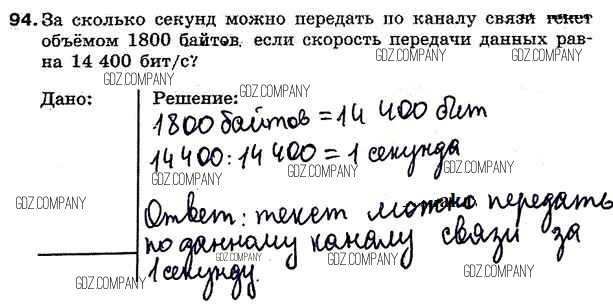 94. За сколько секунд можно передать по каналу связи текст
объёмом 1800 байтов, если скорость передачи данных рав-
на 14 400 бит/с?
GDZ.COMPANY GDZ.COMPANY GDZ.COMPANY
Дано: Решение: GDZ.COMPANY
GDZ.COMPANY
1800 байтов = 14 400 бит
GDZ.COMPANY
14 400 : 14 400 = 1 секунда
GDZ.COMPANY GDZ.COMPANY
GDZ.COMPANY
Ответ: текст можно передать
по данному каналу связи за
GDZ.COMPANY GDZ.COMPANY
1 секунду.
GDZ.COMPANY GDZ.COMPANY